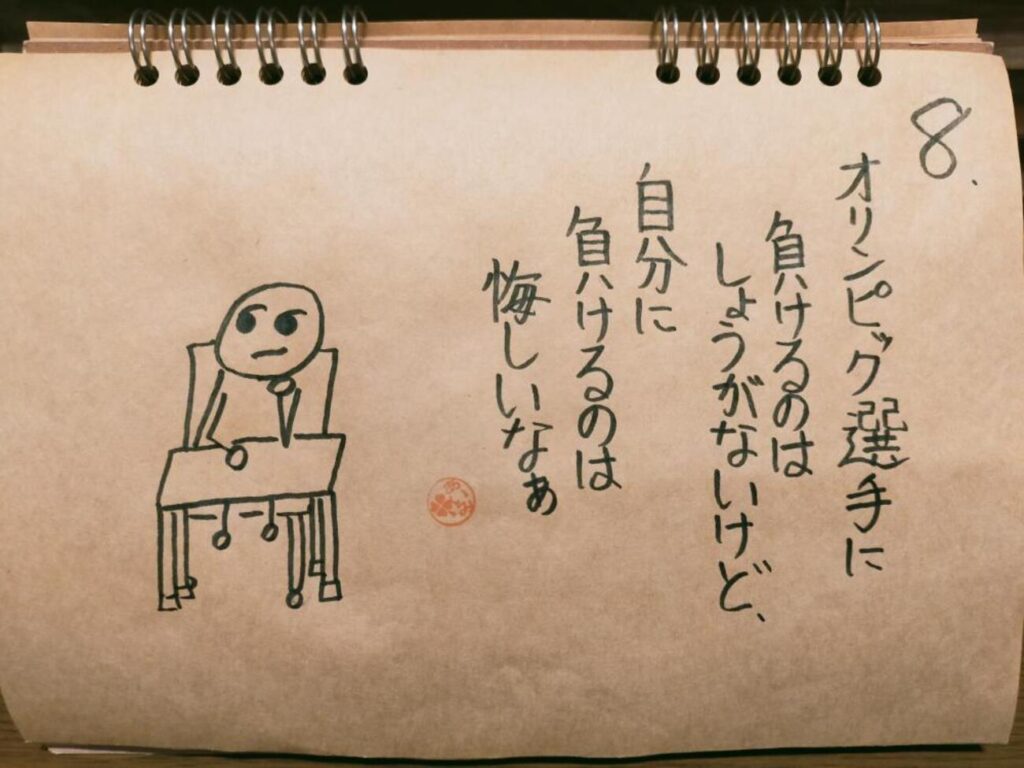 8.
オリンピック選手に
負けるのは
しょうがないけど、
自分に
負けるのは
悔しいなぁ